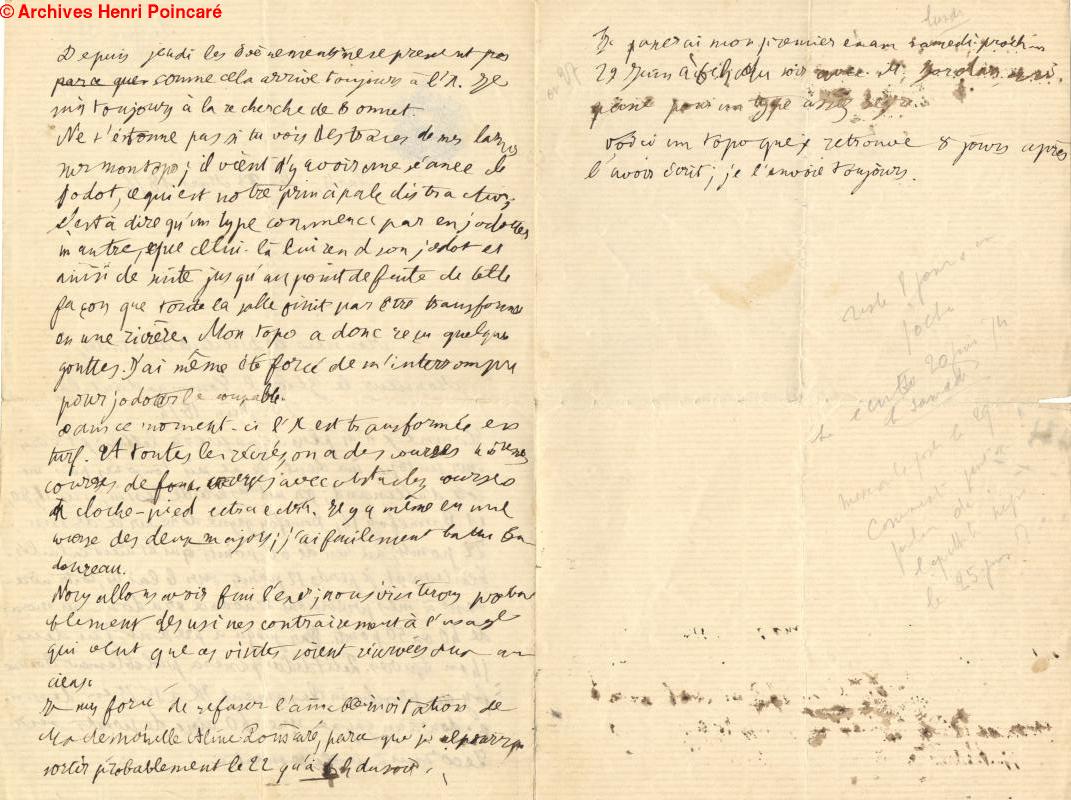 © Archives Henri Poincaré
Depuis jeudi les évènements ne se pressent pas
parce que comme cela arrive toujours à l'X. Je
suis toujours à la recherche de Bonnet.
Ne t'étonne pas si tu vois des traces de mes larmes
sur mon topo; il vient d'y avoir une séance de
jodot, ce qui est notre principale distraction;
c'est à dire qu'un type commence par en jodotter
un autre, que celui-là lui rend son jodot et
ainsi de suite jusqu'au point de fuite de telle
façon que toute la salle finit par être transformée
en une rivière. Mon topo a donc reçu quelques
gouttes. J'ai même été forcé de m'interrompre
pour jodotter le coupable.
Dans ce moment-ci l'X est transformée en
turf. Et toutes les récrés on a des courses
courses de fond, courses avec obstacles, courses
à cloche-pied etc etc. Il y a même eu une
course des deux majors; j'ai facilement battu Ba
doureau.
Nous allons avoir fini l'exe; nous visiterons proba
blement des usines contrairement à l'usage
qui veut que ces visites soient réservées aux an
ciens.
Je suis forcé de refuser l'aimable invitation de
Mademoiselle Aline Poincaré, parce que je ne pourrai
sortir probablement le 22 qu'à h du soir.
Je passerai mon premier exam samedi prochain
27 Juin à du soir avec M. Jordan qui
passe pour un type assez
lundi
Voici un topo que je retrouve 8 jours après
l'avoir écrit; je l'envoie toujours.
reste 8 jours en
poche
écrite 20 juin 74
le samedi
mise à la poste le 29
Comment peut-il
parler de
le 25 juin ?